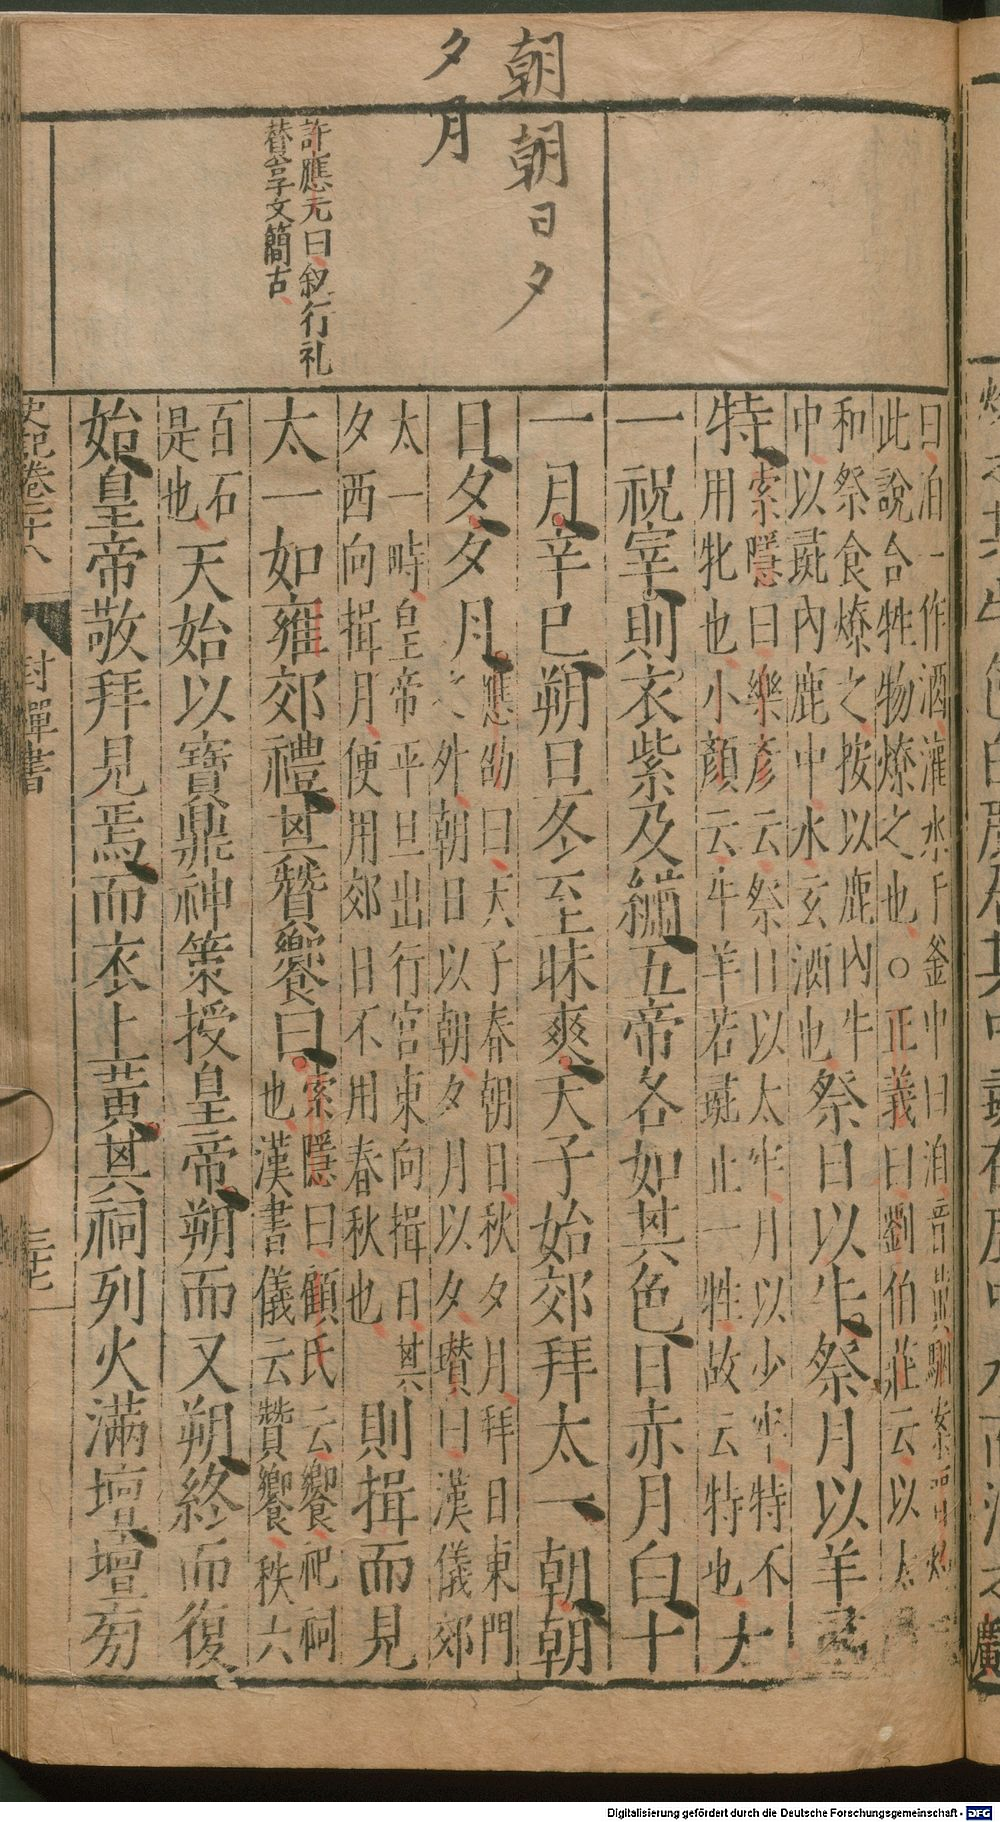 朝朝日夕
夕月
許應元曰叙行礼
賛享文簡古
曰洎一作酒灌水于釜中曰洎音
此說合牲物燎之也○正義曰劉伯莊云以太
和祭食燎之按以鹿內牛
中以彘內鹿中水玄酒也祭日以牛祭月以羊彘
特索隱曰樂彥云祭日以太牢月以少牢特不
用牝也小顏云牛羊若彘止一牲故云特也太
一祝宰則衣紫及繡五帝各如其色日赤月白十
一月辛巳朔旦冬至昧爽天子始郊拜太一朝朝
日夕夕月應劭曰天子春朝日秋夕月拜日東門
之外朝日以朝夕月以夕瓉曰漢儀郊
太一畤皇帝平旦出行宮東向揖日其
夕西向揖月便用郊日不用春秋也則揖而見
太一如雍郊禮其贊饗曰索隱曰顧氏云饗祀祠
也漢書儀云贊饗秩六
百石
是也天始以寶鼎神策授皇帝朔而又朔終而復
始皇帝敬拜見焉而衣上黃其祠列火滿壇壇旁
史記卷二十八
封禪書
三十七
廣
Digitalisierung gefördert durch die Deutsche Forschungsgemeinschaft - DFG